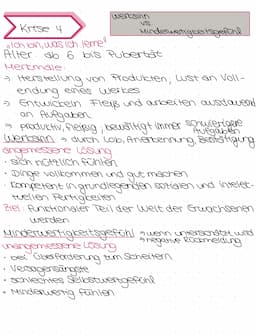 Krise 4
Werksinn
vs
Minderwertigkeitsgefühl
"Ich bin, was ich lerne"
Alter: ab 6 bis Pubertät
Merkmale:
→ Herstellung von Produkten, Lust an Voll-
endung eines Werkes
→ Entwickeln Fleiß und arbeiten ausdauernd
an Aufgaben
→ produktiv, fleißig, bewältigt immer schwierigere
Aufgaben
Werksinn → durch Lob, Anerkennung, Bestätigung
angemessene Lösung
· sich nützlich fühlen
· Dinge vollkommen und gut machen
· Kompetent in grundlegenden sozialen und intelek-
tuellen Fertigkeiten
Ziel: Funktionaler Teil der Welt der Erwachsenen
werden
Minderwertigkeitsgefühl → wenn unterschätzt wird
→ negative Rückmeldung
unangemessene Lösung
· bei Überforderung zum Scheitern
· Versagensängste
· schlechtes Selbstwertgefühl
· Minderwertig fühlen